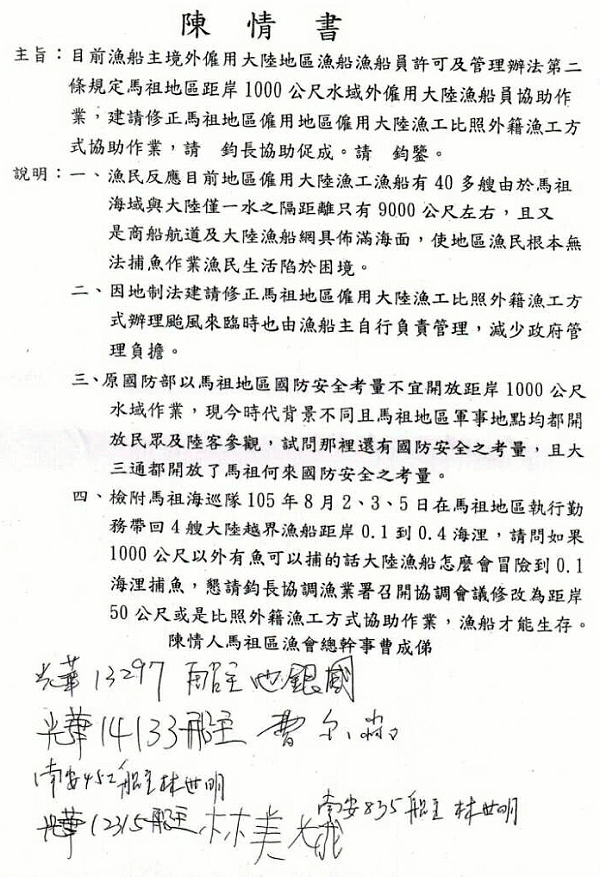 陳情書
主旨：目前漁船主境外僱用大陸地區漁船漁船員許可及管理辦法第二
條規定馬祖地區距岸1000公尺水域外僱用大陸漁船員協助作
業，建請修正馬祖地區僱用地區僱用大陸漁工比照外籍漁工方
式協助作業，請　鈞長協助促成。請　鈞鑒。
說明：一、漁民反應目前地區僱用大陸漁工漁船有40多艘由於馬祖
海域與大陸僅一水之隔距離只有9000公尺左右，且又
是商船航道及大陸漁船網具佈滿海面，使地區漁民根本無
法捕魚作業漁民生活陷於困境。
二、因地制法建請修正馬祖地區僱用大陸漁工比照外籍漁工方
式辦理颱風來臨時也由漁船主自行負責管理，減少政府管
理負擔。
三、原國防部以馬祖地區國防安全考量不宜開放距岸1000公尺
水域作業，現今時代背景不同且馬祖地區軍事地點均都開
放民眾及陸客參觀，試問那裡還有國防安全之考量，且大
三通都開放了馬祖何來國防安全之考量。
四、檢附馬祖海巡隊105年8月2、3、5日在馬祖地區執行勤
務帶回4艘大陸越界漁船距岸0.1到0.4海浬，請問如果
1000公尺以外有魚可以捕的話大陸漁船怎麼會冒險到0.1
海浬捕魚，懇請鈞長協調漁業署召開協調會議修改為距岸
50公尺或是比照外籍漁工方式協助作業，漁船才能生存。
陳情人馬祖區漁會總幹事曹成俤
光華13297 船主 池銀國
光華14133船主 曹尔
南安452船主林世明
南安835船主 林世明
光華12315船主 林美